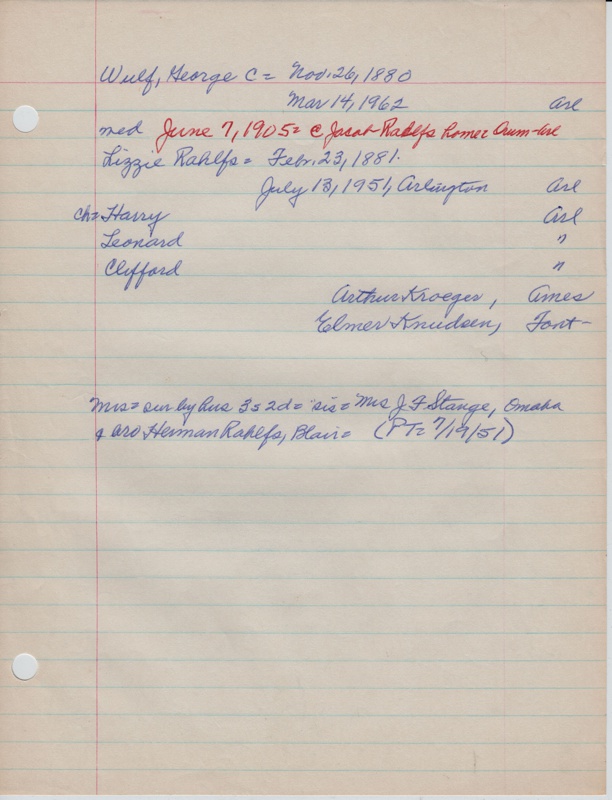 Wulf, George C = Nov. 26, 1880
Mar 14, 1962 Arl
med June 7, 1905 = @ Jacob Rahlfs home Arl
Lizzie Rahlfs = Febr. 23, 1881.
July 13, 1951, Arlington Arl
ch = Harry Arl
Leonard "
Clifford "
Arthur Kroeger, Ames
Elmer Knudsen, Font-
Mrs = sur by hus 3s 2d = sis = Mrs J F Stange, Omaha
& bro Herman Rahlfs, Blair = (PT = 7/19/51)